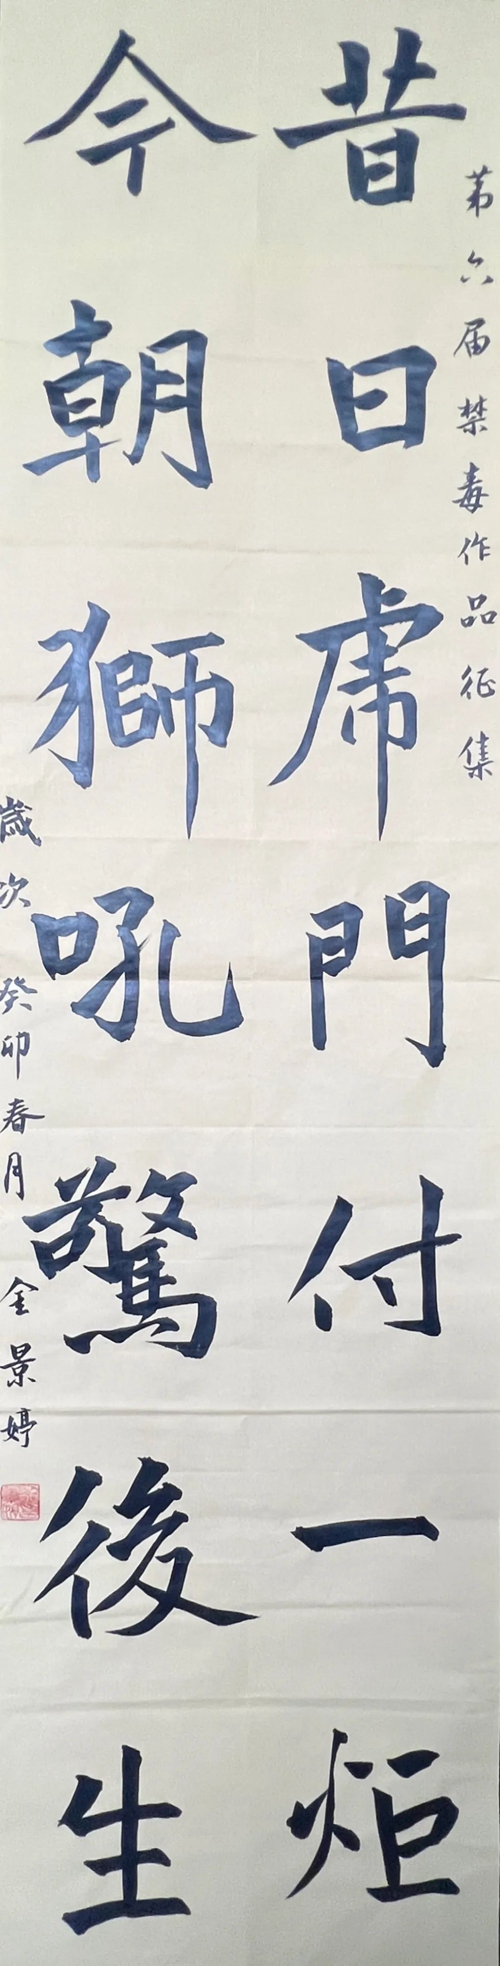 第六届禁毒作品征集
昔日虎門付一炬
今朝獅吼驚後生
歲次癸卯春月 金景婷